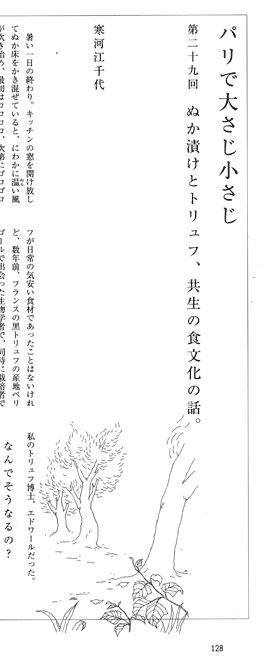 パリで大さじ小さじ
第二十九回　ぬか漬けとトリュフ、共生の食文化の話。
寒河江千代
　暑い一日の終わり。キッチンの窓を開け放し
てぬか床をかき混ぜていると、にわかに温い風
が吹き始め、最初はコロコロ、次第にゴロゴロ
フが日常の気安い食材であったことはないけれ
ど、数年前、フランスの黒トリュフの産地ペリ
ゴールで出会った生物学者で、同時に栽培者で
私のトリュフ博士、エドワールだった。
なんでそうなるの？
128